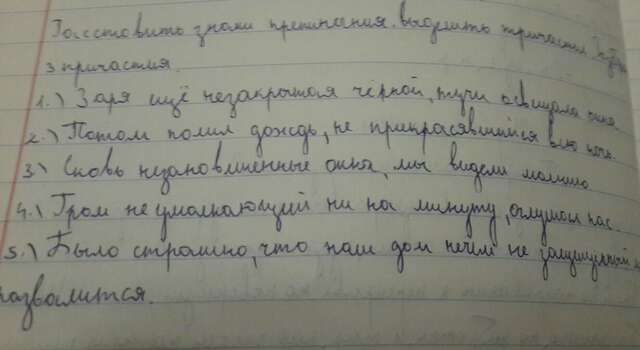 Расставить знаки препинания. выделить причастия
з причастия.
1.) Заря ещё незакрытая чёрной, тучи освещала окна.
2.) Потом полил дождь, не прикрасявшийся всю ночь.
3.) Сковь незановешенные окна, мы видели молнию
4.) Гром не умолкающий ни на минуту, оглушал нас.
5.) Было страшно, что наш дом нечем не защищённый
развалится.